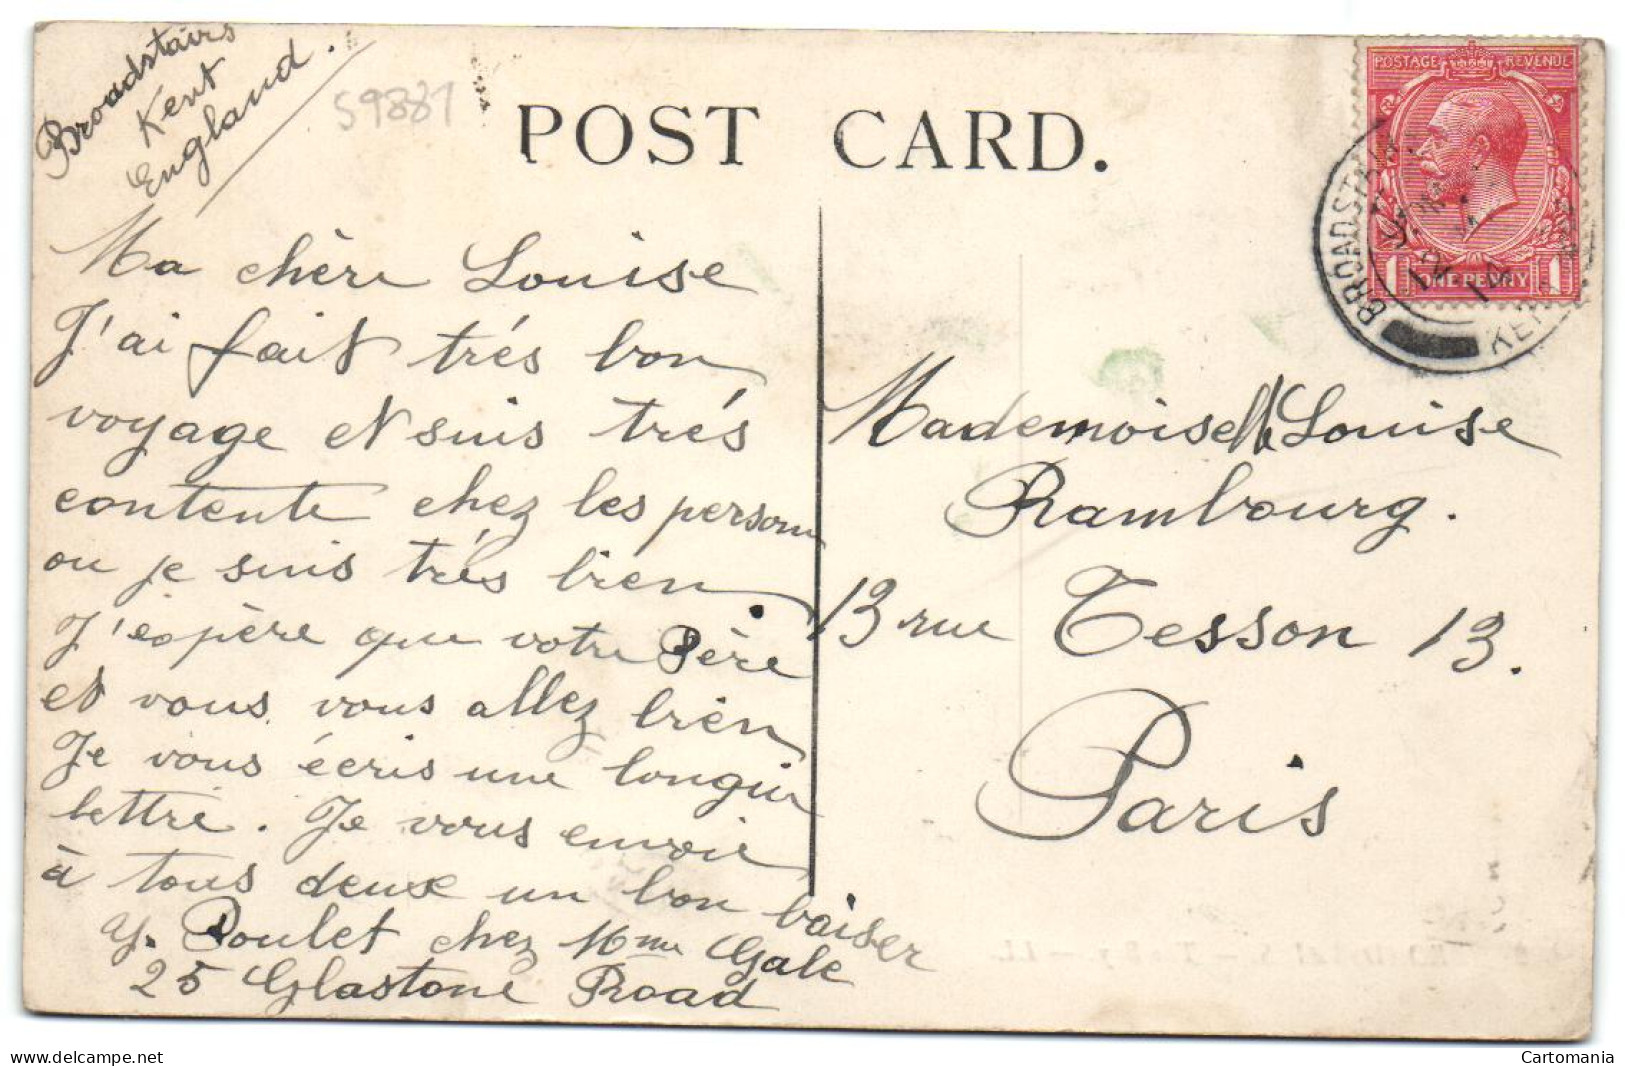 Broadstairs
Kent
England.
59881
POST CARD.
POSTAGE REVENUE
1 ONE PENNY 1
BROADSTAIRS
KENT
Ma chère Louise
J'ai fait trés bon
voyage et suis trés
contente chez les personne
ou je suis trés bien
J'éspère que votre Père
et vous vous allez bien
Je vous écris une longue
lettre. Je vous envoie
à tous deux un bon baiser
Y. Poulet chez Mme Gale
25 Glastone Road
Mademoiselle Louise
Rambourg.
13 rue Tesson 13.
Paris
delcampe.net
Cartomania